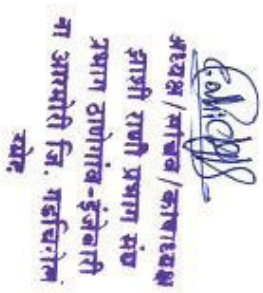 अध्यक्ष/सचिव/कोषाध्यक्ष
झाशी राणी प्रभाग संघ
प्रभाग ठाणेगाव-इंजेवारी
ता आरमोरी जि. गडचिरोली